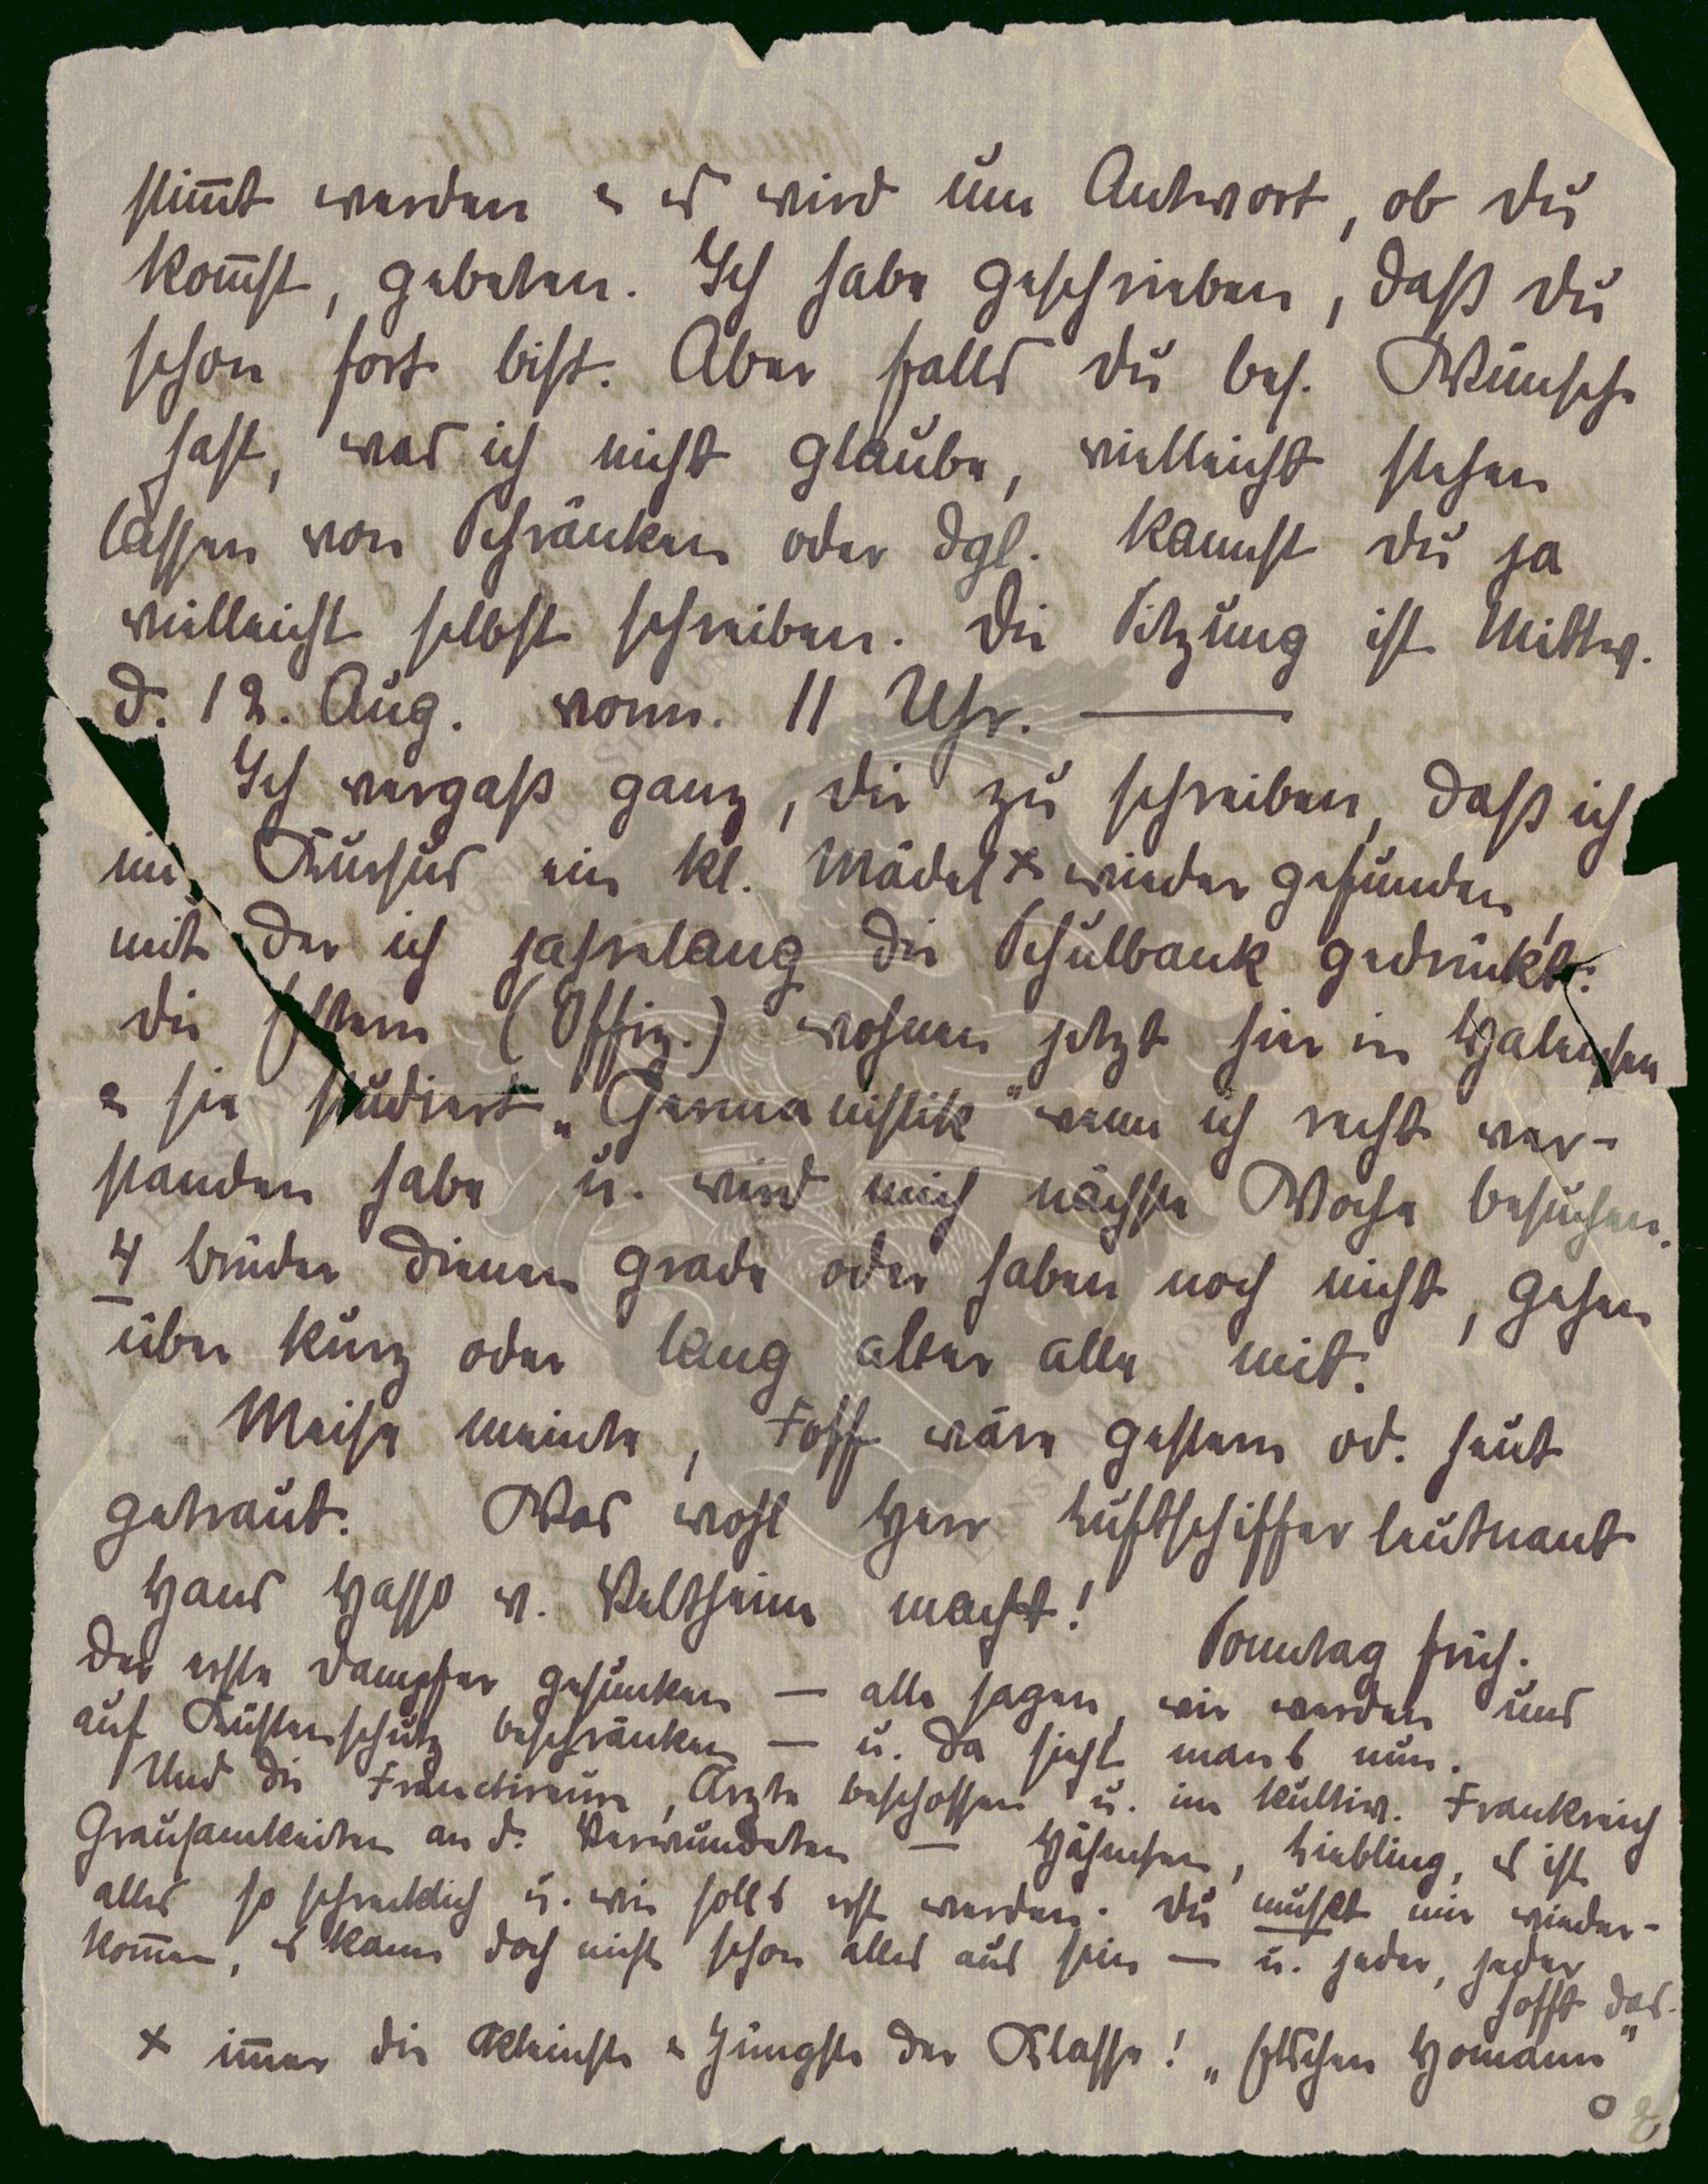 stim̅t werden & es wird um Antwort, ob Du
kom̅st, gebeten. Ich habe geschrieben, daß Du
schon fort bist. Aber falls Du bes. Wünsche
hast, was ich nicht glaube, vielleicht stehen
lassen von Schränken oder dgl. kannst Du ja
vielleicht selbst schreiben. Die Sitzung ist Mittw.
d. 12. Aug. vorm. 11 Uhr. —
Ich vergaß ganz, Dir zu schreiben, daß ich
im Kursus ein kl. Mädel x wieder gefunden,
mit der ich jahrelang die Schulbank gedrückt.
Die Eltern (Offiz.) wohnen jetzt hier in Halensee
& sie studiert „Germanistik" wenn ich recht ver-
standen habe u. wird mich nächste Woche besuchen.
4 Brüder dienen grade oder haben noch nicht, gehen
über kurz oder lang aber alle mit.
Meise meinte, Foff wäre gestern od. heut
getraut. Was wohl Herr Luftschifferleutnant
Hans Hasso v. Veltheim macht!
Sonntag früh.
Der erste Dampfer gesunken — alle sagen, wir werden uns
auf Küstenschutz beschränken — u. da sieht mans nun.
Und die Franctireure, Ärzte beschossen u. im kultiv. Frankreich
Grausamkeiten an d. Verwundeten — Hähnchen, Liebling, es ist
alles so schrecklich u. wie solls erst werden. Du mußt mir wieder-
kom̅en, es kann doch nicht schon alles aus sein — u. jeder, jeder
hofft das.
x im̅er die Kleinste & Jüngste der Klasse! „Elschen Homann"